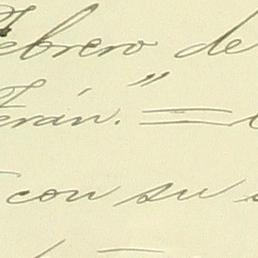 Febrero de
Terán." =
con su